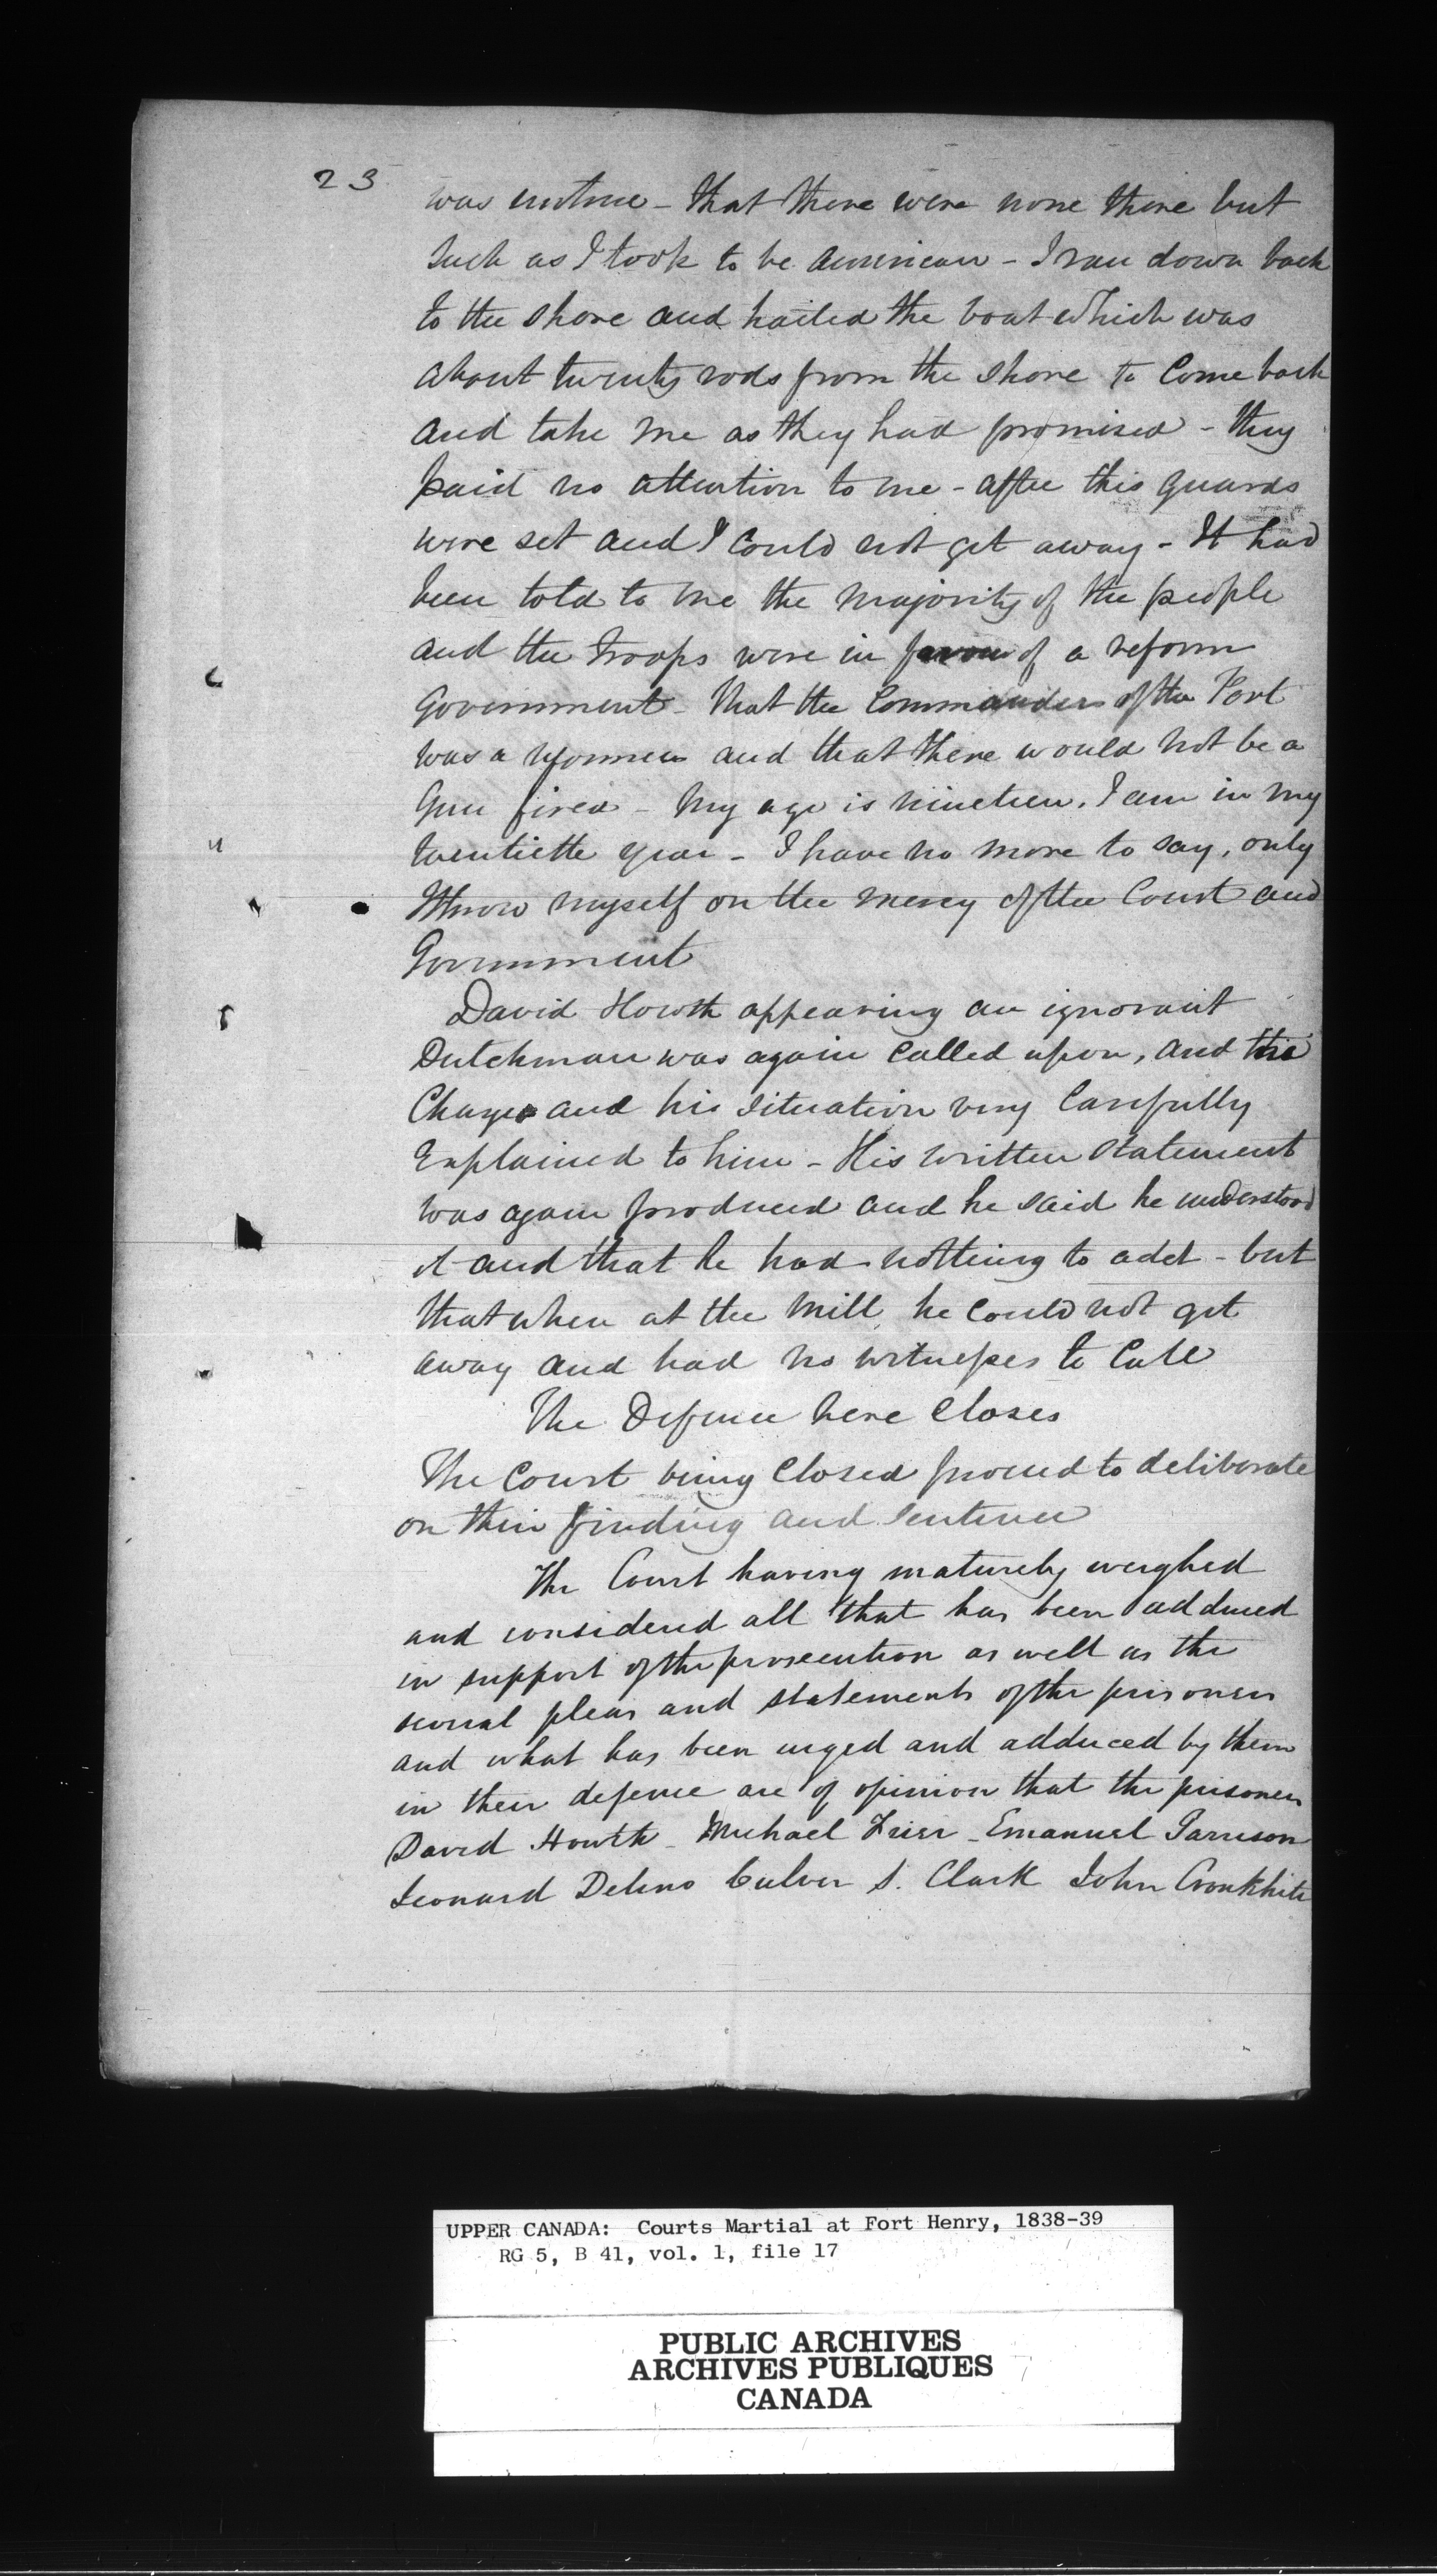 23
was untrue - that there were none there but
such as I took to be American - I ran down back
to the shore and hailed the boat which was
about twenty rods from the shore to Come back
and take me as they had promised - they
paid no attention to me - after this guards
were set and I could not get away - It had
been told to me the majority of the people
and the troops were in favour of a reform
Government - that the Commander of the Fort
was a reformer and that there would not be a
Gun fired - My age is nineteen. I am in my
twentieth year - I have no more to say, only
throw myself on the mercy of the Court and
Government
David Howth appearing an ignorant
Dutchman was again Called upon, and the
Charges and his situation very Carefully
Explained to him - His written statement
was again produced and he said he understood
it and that he had nothing to add - but
that when at the Mill he could not get
away and had no witnesses to Call
The Defence here Closes
The Court being Closed proceed to deliberate
on their finding and sentence
The Court having maturely weighed
and considered all that has been adduced
in support of the prosecution as well as the
several pleas and statements of the prisoners
and what has been urged and adduced by them
in their defence are of opinion that the prisoners
David Howth - Michael Frier - Emanuel Garrison
Leonard Delino Culver S. Clark John Cronkhite
UPPER CANADA: Courts Martial at Fort Henry, 1838-39
RG 5, B 41, vol. 1, file 17
PUBLIC ARCHIVES
ARCHIVES PUBLIQUES
CANADA